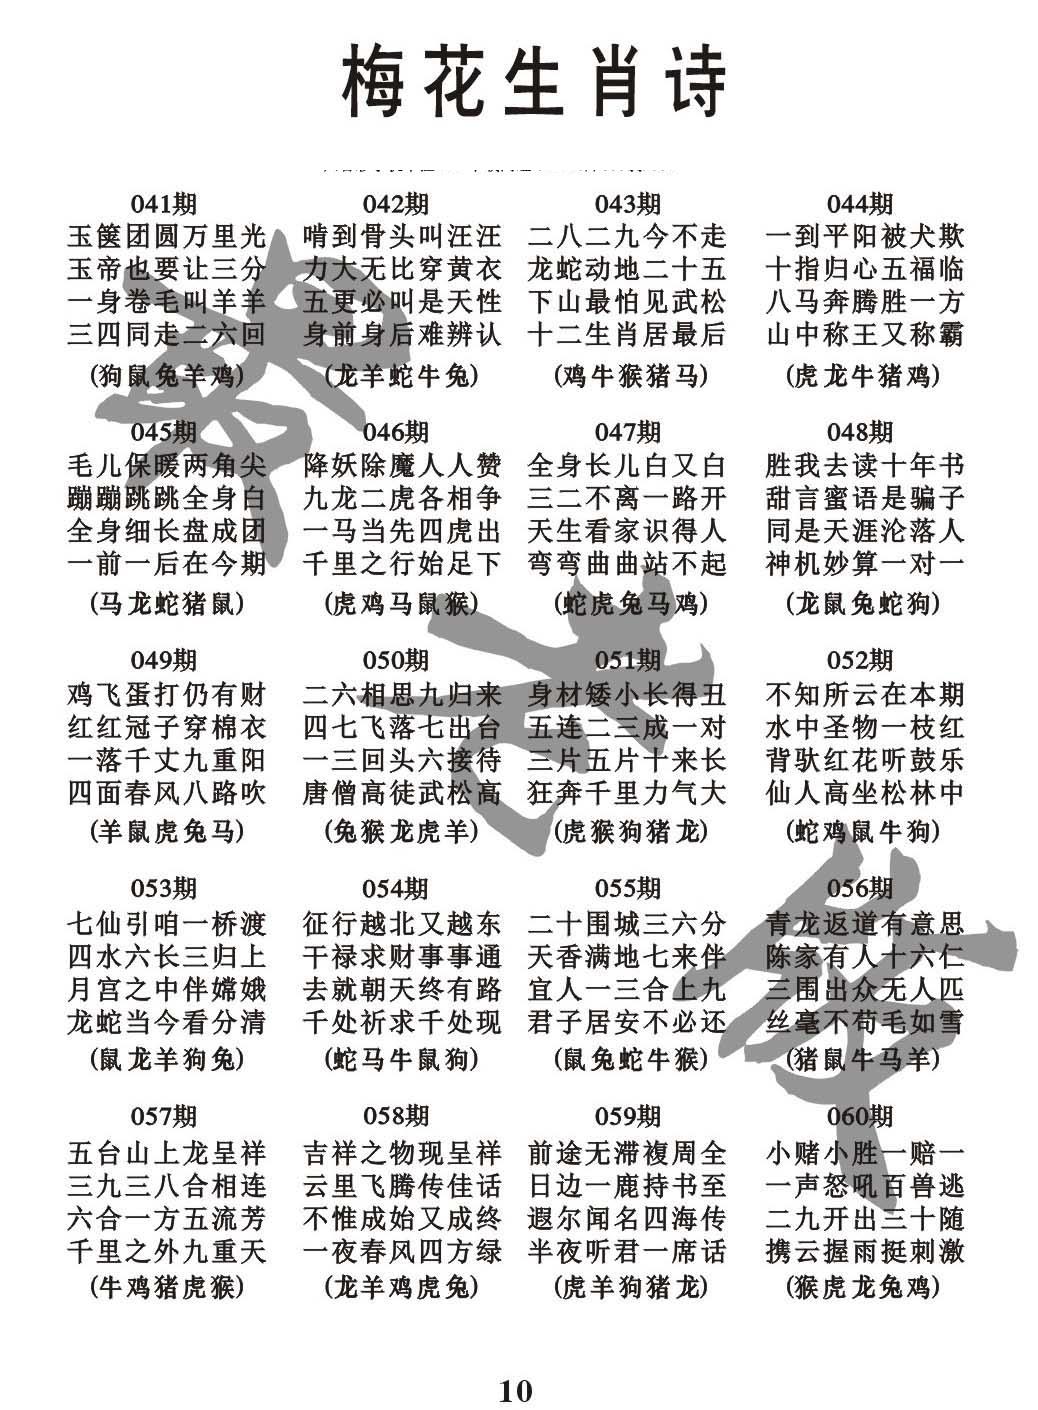 梅花生肖诗
041期
玉箧团圆万里光
玉帝也要让三分
一身卷毛叫羊羊
三四同走二六回
(狗鼠兔羊鸡)
042期
啃到骨头叫汪汪
力大无比穿黄衣
五更必叫是天性
身前身后难辨认
(龙羊蛇牛兔)
043期
二八二九今不走
龙蛇动地二十五
下山最怕见武松
十二生肖居最后
(鸡牛猴猪马)
044期
一到平阳被犬欺
十指归心五福临
八马奔腾胜一方
山中称王又称霸
(虎龙牛猪鸡)
045期
毛儿保暖两角尖
蹦蹦跳跳全身白
全身细长盘成团
一前一后在今期
(马龙蛇猪鼠)
046期
降妖除魔人人赞
九龙二虎各相争
一马当先四虎出
千里之行始足下
(虎鸡马鼠猴)
047期
全身长儿白又白
三二不离一路开
天生看家识得人
弯弯曲曲站不起
(蛇虎兔马鸡)
048期
胜我去读十年书
甜言蜜语是骗子
同是天涯沦落人
神机妙算一对一
(龙鼠兔蛇狗)
049期
鸡飞蛋打仍有财
红红冠子穿棉衣
一落千丈九重阳
四面春风八路吹
(羊鼠虎兔马)
050期
二六相思九归来
四七飞落七出台
一三回头六接待
唐僧高徒武松高
(兔猴龙虎羊)
051期
身材矮小长得丑
五连二三成一对
三片五片十来长
狂奔千里力气大
(虎猴狗猪龙)
052期
不知所云在本期
水中圣物一枝红
背驮红花听鼓乐
仙人高坐松林中
(蛇鸡鼠牛狗)
053期
七仙引咱一桥渡
四水六长三归上
月宫之中伴嫦娥
龙蛇当今看分清
(鼠龙羊狗兔)
054期
征行越北又越东
干禄求财事事通
去就朝天终有路
千处祈求千处现
(蛇马牛鼠狗)
055期
二十围城三六分
天香满地七来伴
宜人一三合上九
君子居安不必还
(鼠兔蛇牛猴)
056期
青龙返道有意思
陈家有人十六仁
三围出众无人匹
丝毫不苟毛如雪
(猪鼠牛马羊)
057期
五台山上龙呈祥
三九三八合相连
六合一方五流芳
千里之外九重天
(牛鸡猪虎猴)
058期
吉祥之物现呈祥
云里飞腾传佳话
不惟成始又成终
一夜春风四方绿
(龙羊鸡虎兔)
059期
前途无滞複周全
日边一鹿持书至
遐尔闻名四海传
半夜听君一席话
(虎羊狗猪龙)
060期
小赌小胜一赔一
一声怒吼百兽逃
二九开出三十随
携云握雨挺刺激
(猴虎龙兔鸡)
10